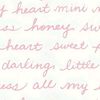 y heart mini m
ss honey sw
heart sweet
darling, little
ess all my s